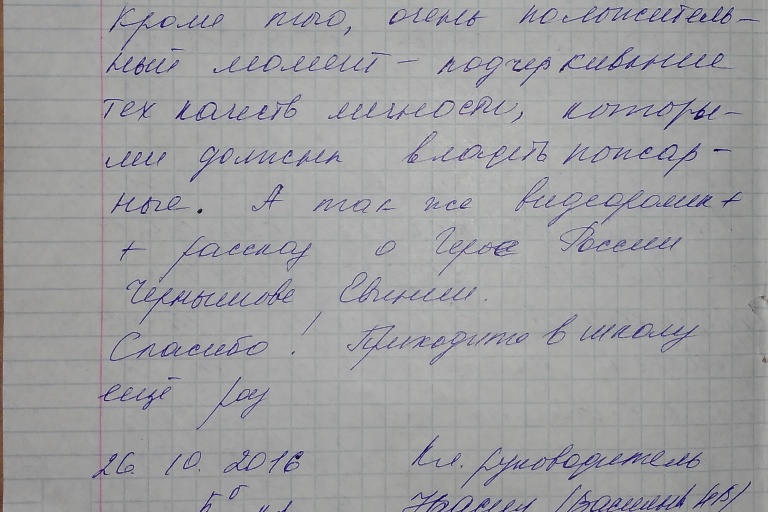 Кроме того, очень положитель-
ный момент – подчеркивание
тех качеств личности, которы-
ми должны владеть пожар-
ные. А так же видеоролик +
+ рассказ о Герое России
Чернышове Евгении.
Спасибо! Приходите в школу
ещё раз
26. 10. 2016 Кл. руководитель
5 б кл